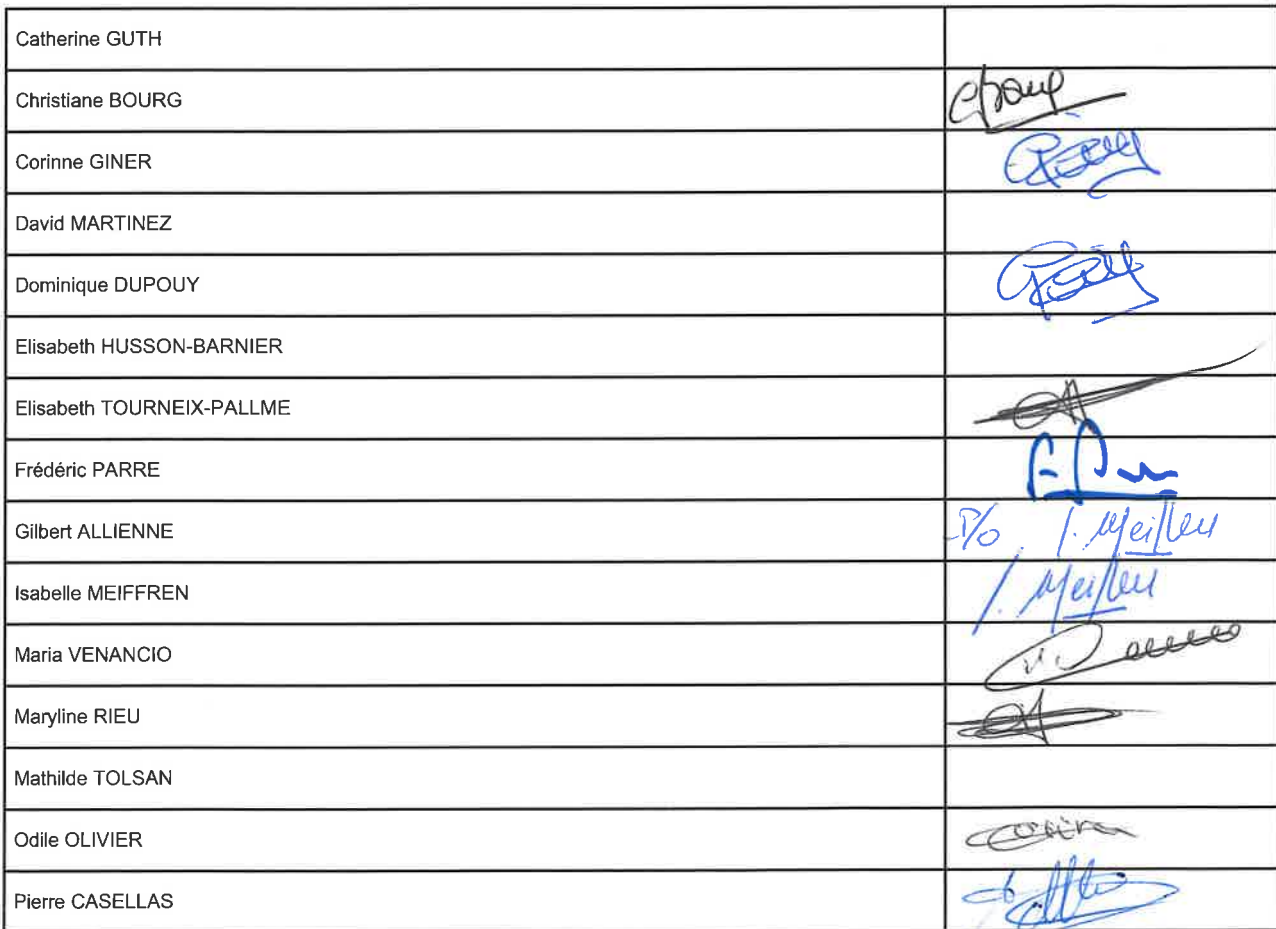 Catherine GUTH
Christiane BOURG
Corinne GINER
David MARTINEZ
Dominique DUPOUY
Elisabeth HUSSON-BARNIER
Elisabeth TOURNEIX-PALLME
Frédéric PARRE
Gilbert ALLIENNE P/O I. Meiffren
Isabelle MEIFFREN I. Meiffren
Maria VENANCIO
Maryline RIEU
Mathilde TOLSAN
Odile OLIVIER
Pierre CASELLAS